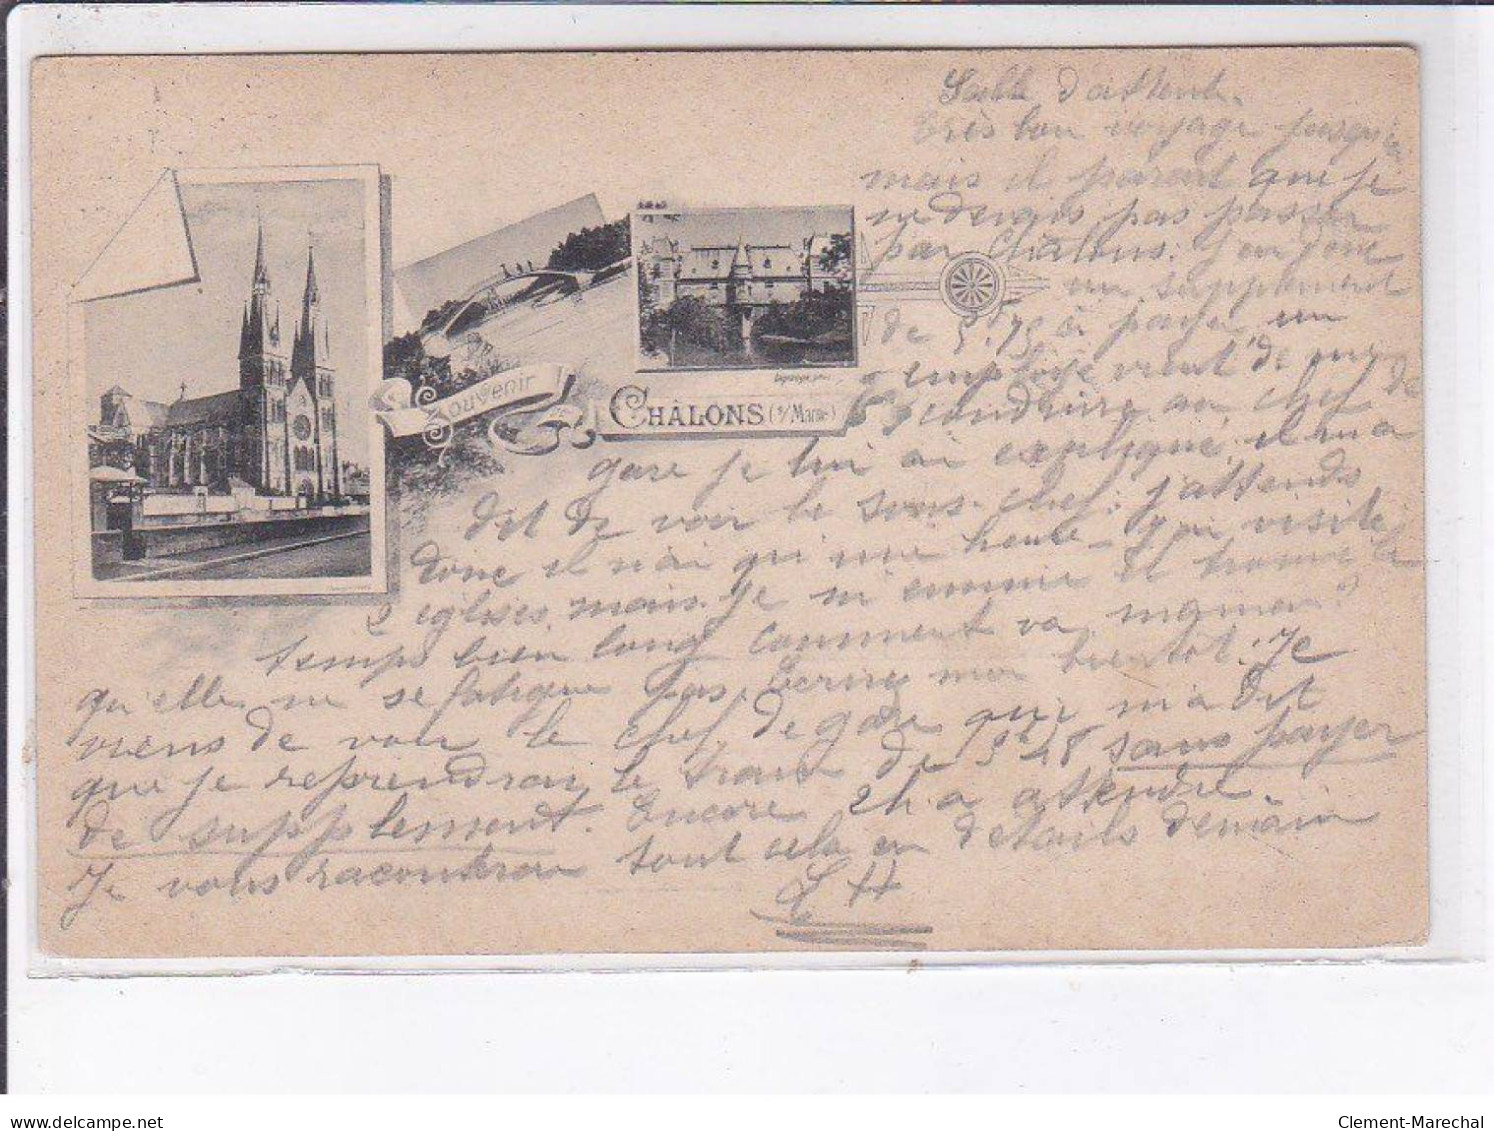 Salle d'attente.
Très bon voyage jusqu'ici
mais il parait que je
ne devais pas passer
par Châlons. J'ai donc
un supplement
de 5f.75 à payer, un
employé vient de me
conduire au chef de
gare je lui ai expliqué, il m'a
dit de voir le sous-chef: j'attends
donc il n'ai qu'une heure. J'ai visité
2 eglises, mais je m'ennuie et trouve le
temps bien long comment va maman?
qu'elle ne se fatigue pas. Ecrivez moi bientôt. Je
viens de voir le chef de gare qui m'a dit
que je reprendrai le train de 3h18 sans payer
de supplement. Encore 2h à attendre.
Je vous raconterai tout cela en details demain
L H
Souvenir
CHÂLONS (s/ Marne)
Clement-Marechal
delcampe.net